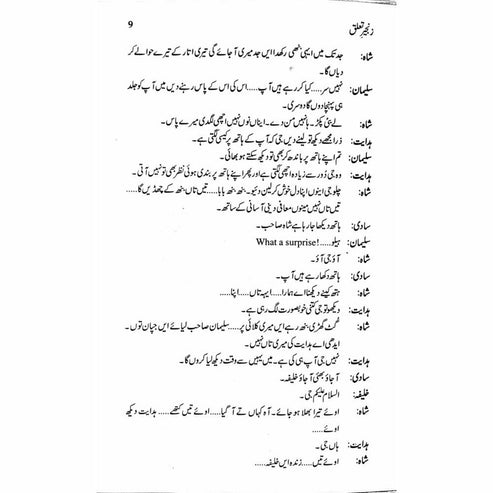 9 زنجیرِ تعلق
شاہ: جد تک میں ایہی گھڑی رکھدا ایں جد میری آ جائے گی تیری اتار کے تیرے حوالے کر
دیاں گا۔
سلیمان: نہیں سر.....کیا کر رہے ہیں آپ.....اس کی اس کے پاس رہنے دیں میں آپ کو جلد
ہی پہنچا دوں گا دوسری۔
شاہ: لے بئی پکڑ۔ باہنیں من دے۔ ایناں نوں نہیں اچھی لگدی میرے پاس۔
ہدایت: ذرا مجھے دیکھ تو لینے دیں جی کہ آپ کے ہاتھ پر کیسی لگتی ہے۔
سلیمان: تم اپنے ہاتھ پر باندھ کر بھی تو دیکھ سکتے ہو بھائی۔
ہدایت: وہ جی دُور سے زیادہ اچھی لگتی ہے اور پھر اپنے ہاتھ پر بندھی ہوئی نظر بھی تو نہیں آتی۔
شاہ: چلو جی اینوں اپنا دل خوش کر لین دئیو۔ بنھ، بنھ بابا.....تیں تاں بنھ کے چھڈیں گا.....
تیں تاں نہیں مینوں معافی دینی آسانی کے ساتھ۔
ساوی: ہاتھ دیکھا جا رہا ہے شاہ صاحب۔
سلیمان: ہیلو.....What a surprise!
شاہ: آؤ جی آؤ۔
ساوی: ہاتھ دکھا رہے ہیں آپ۔
شاہ: ہتھ کہنے دیکھنا اے ہمارا.....ایہہ تاں.....اپنا.....
ہدایت: دیکھو تو جی کتنی خوبصورت لگ رہی ہے۔
شاہ: گُٹ گھڑی، بنھ رہے ایں میری کلائی پر.....سلیمان صاحب لیائے ایں جپان توں۔
ایدھی اے ہدایت کی میری تاں نہیں۔
ہدایت: نہیں جی آپ ہی کی ہے۔ میں یہیں سے وقت دیکھ لیا کروں گا۔
ساوی: آ جاؤ بھئی آ جاؤ خلیفہ۔
خلیفہ: السلام علیکم جی۔
شاہ: اوئے تیرا بھلا ہو جائے۔ آہ کہاں تے آ گیا.....اوئے تیں کتھے.....ہدایت دیکھ
اوئے.....
ہدایت: ہاں جی۔
شاہ: اوئے تیں.....زندہ ایں خلیفہ.....